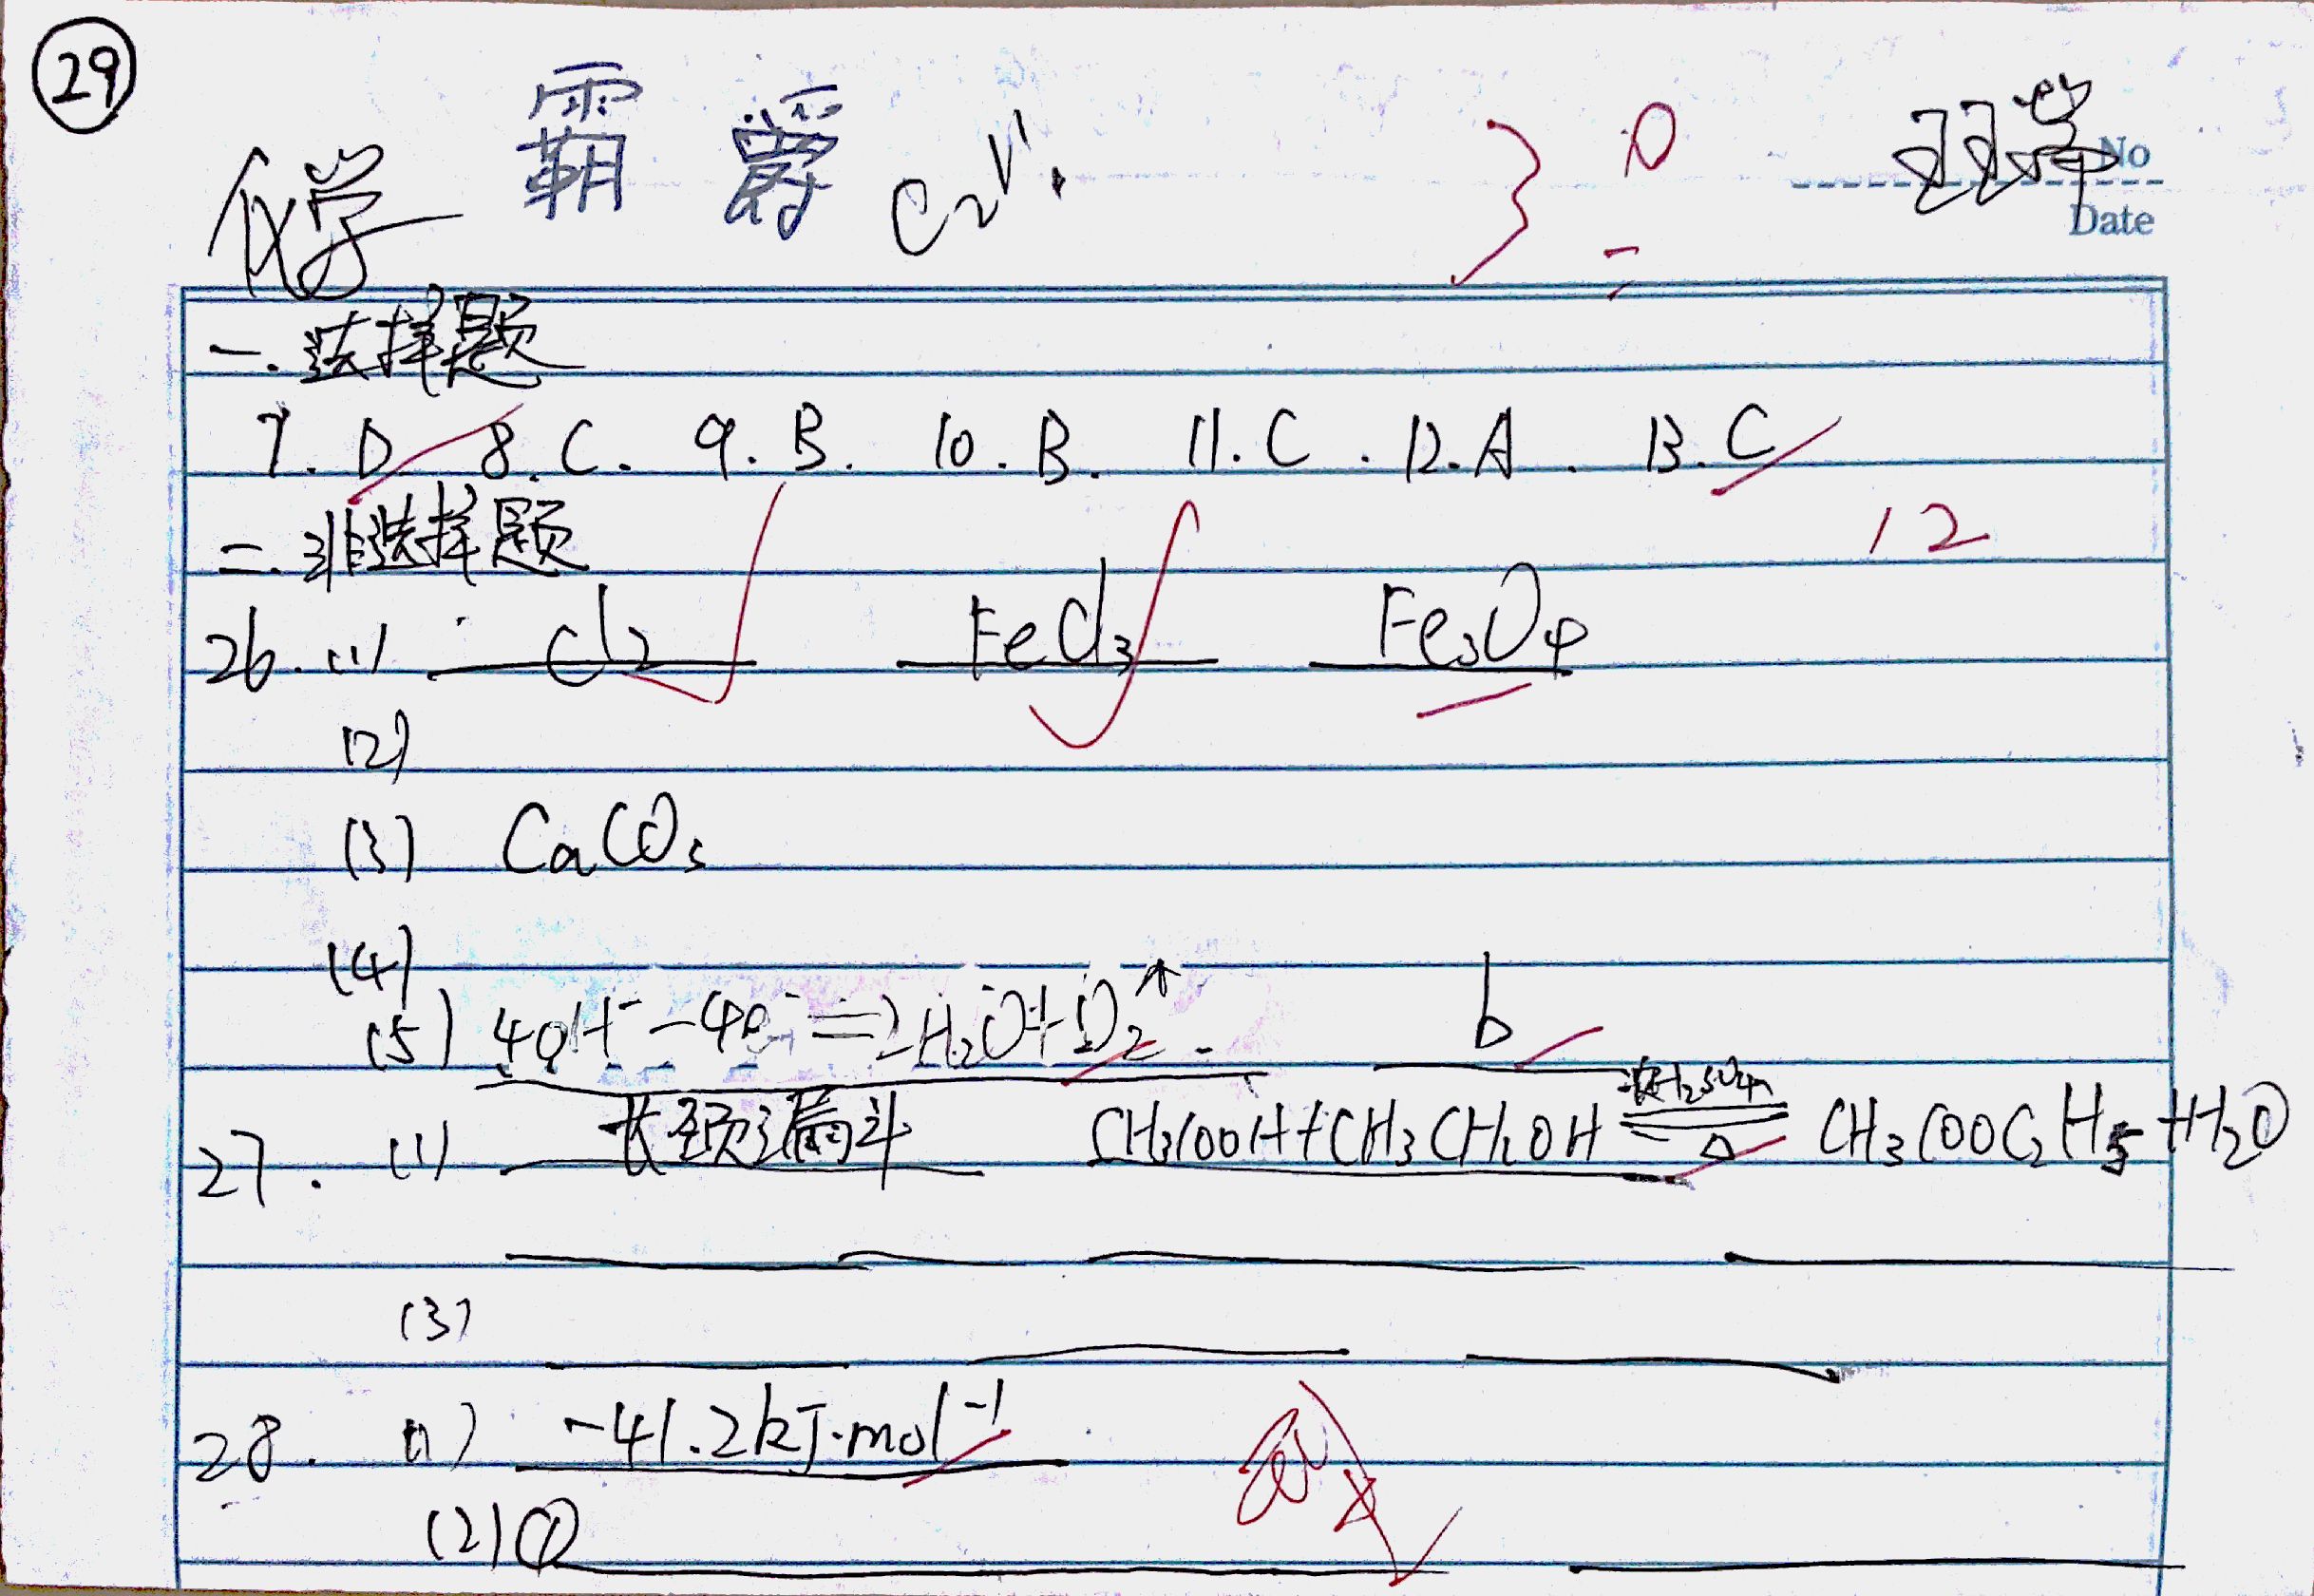 29
化学 霸 爵
No
Date
一. 选择题
7. D 8. C. 9. B. 10. B. 11. C. 12. A. 13. C
12
二. 非选择题
26. (1) Cl2 FeCl3 Fe3O4
(2)
(3) CaCO3
(4)
(5) 4OH⁻-4e⁻=2H2O+O2↑ b
27. (1) 长颈漏斗 CH3COOH+CH3CH2OH 浓H2SO4 ⇌ △ CH3COOC2H5+H2O
(3)
28. (1) -41.2kJ·mol⁻¹
(2)①